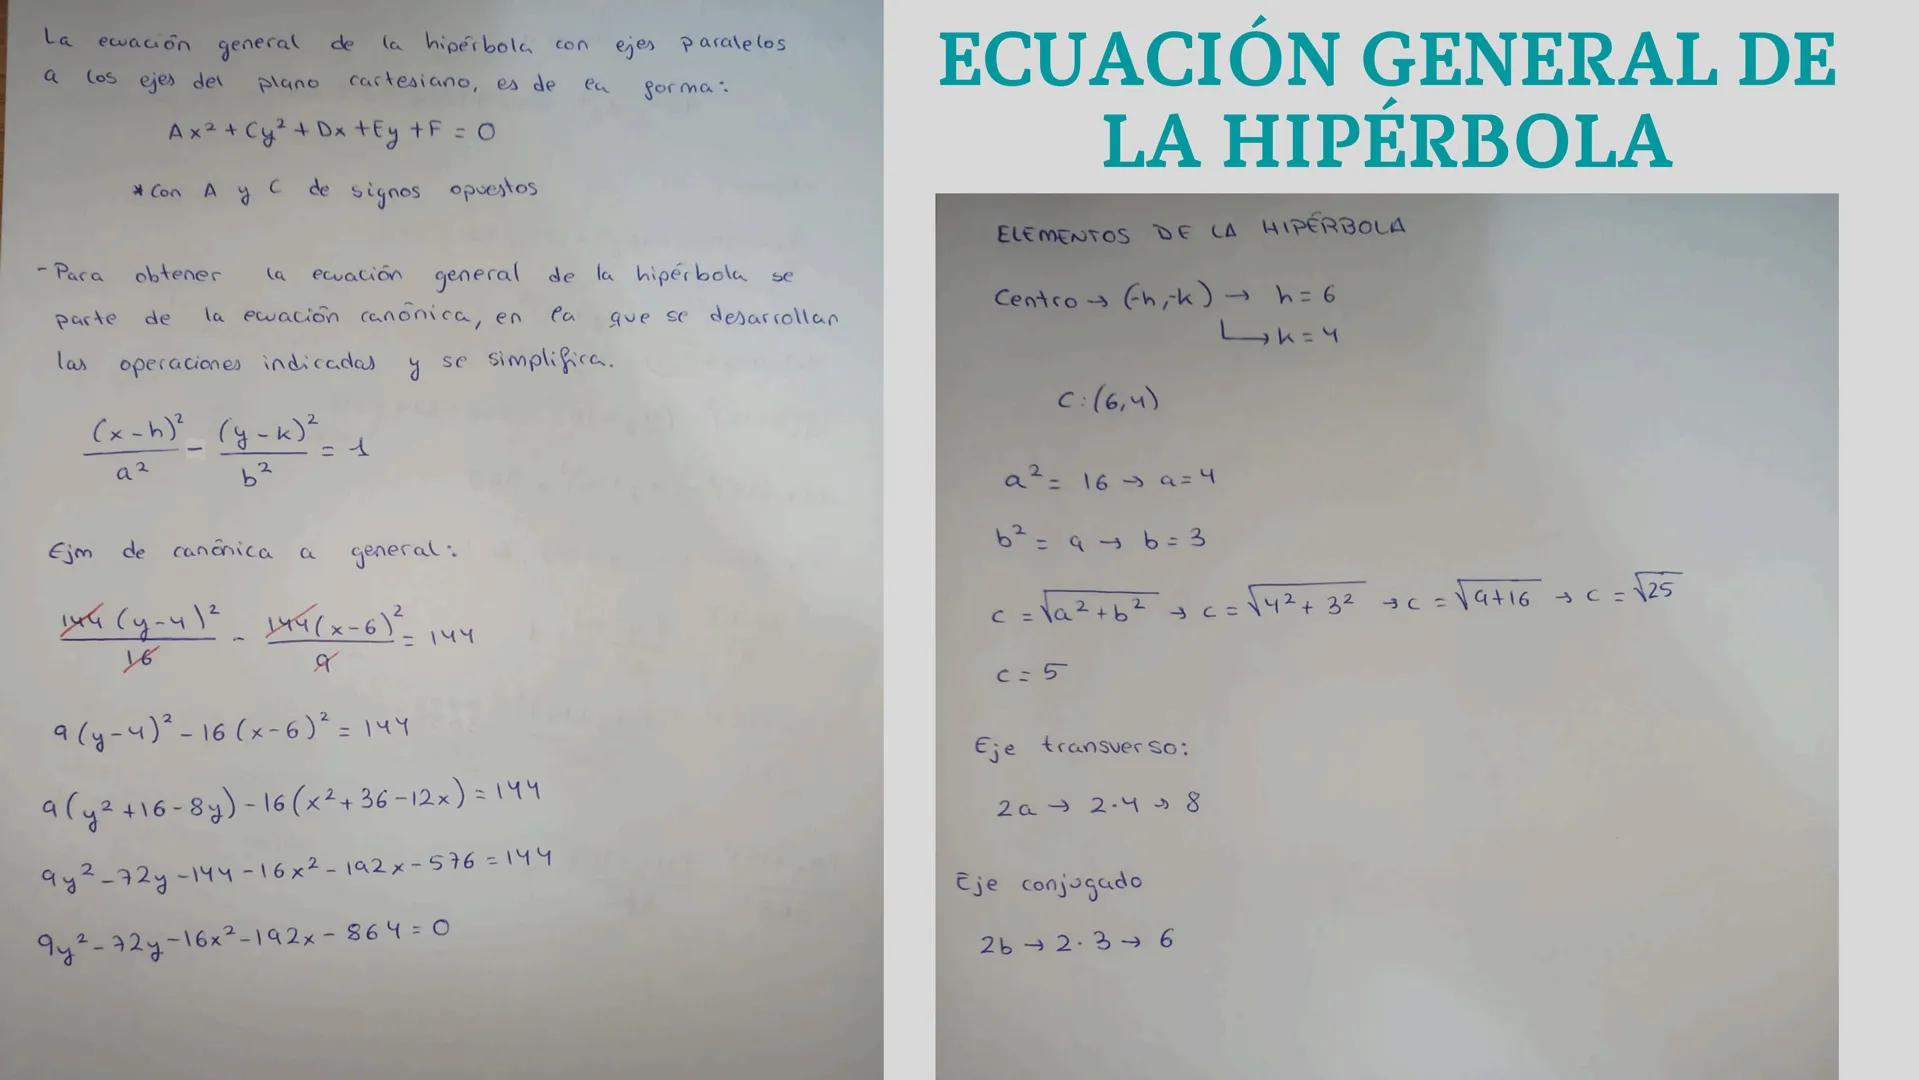 La ecuación general de la hipérbola con ejes paralelos
a los ejes del plano cartesiano, es de la forma:
Ax² + Cy² + Dx + Ey + F = 0
* Con A y C de signos opuestos
- Para obtener la ecuación general de la hipérbola se
parte de la ecuación canónica, en la que se desarrollan
las operaciones indicadas y se simplifica.
(x-h)²/a² - (y-k)²/b² = 1
Ejm de canónica a general:
144(y-4)²/16 - 144(x-6)²/9 = 144
9(y-4)² - 16(x-6)² = 144
9(y² + 16 - 8y) - 16(x² + 36 - 12x) = 144
9y² - 72y - 144 - 16x² - 192x - 576 = 144
9y² - 72y - 16x² - 192x - 864 = 0
ECUACIÓN GENERAL DE
LA HIPÉRBOLA
ELEMENTOS DE LA HIPÉRBOLA
Centro → (-h,-k) → h = 6
↳ k = 4
C: (6,4)
a² = 16 → a = 4
b² = 9 → b = 3
c = √a² + b² → c = √4² + 3² → c = √9+16 → c = √25
c = 5
Eje transverso:
2a → 2·4 → 8
Eje conjugado
2b → 2·3 → 6